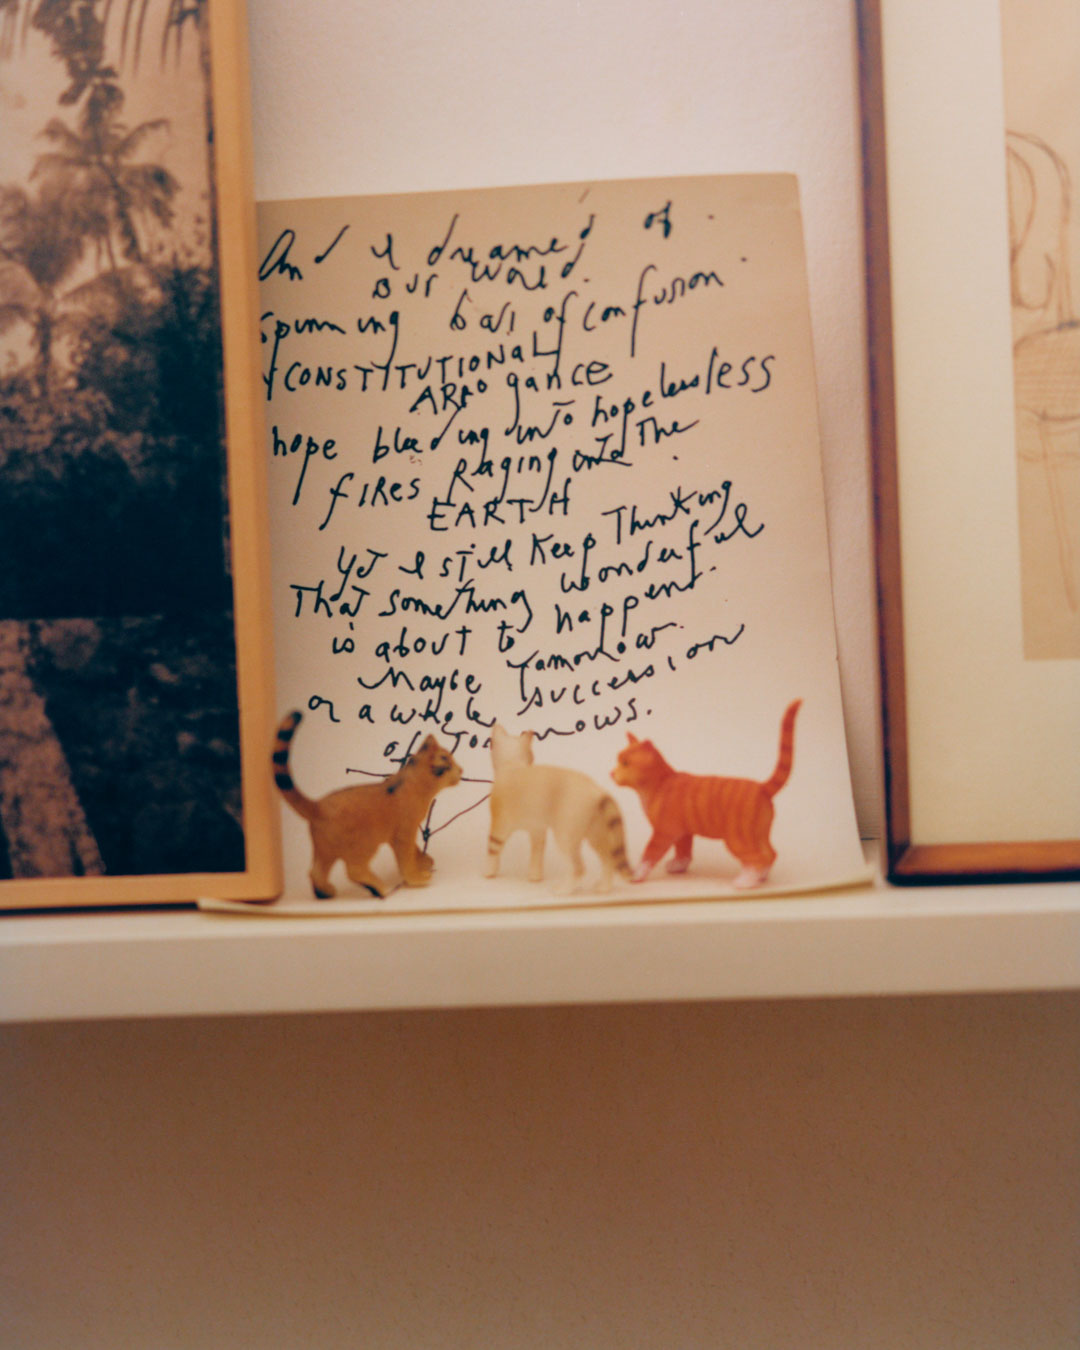 And I dreamed of
our world.
spinning ball of confusion
CONSTITUTIONAL
ARROgance
hope bleeding into hopelessless
fIRES Raging into The
EARTH
Yet I still Keep Thinking
That something wonderful
is about to happen.
Maybe Tomorrow.
or a whole succession
of